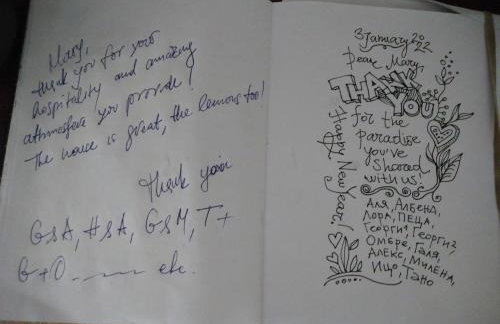 Mary,
thank you for your
hospitality and amazing
atmosphere you provide!
The house is great, the lemons too!
Thank you
GSA, HSA, GSM, T+
G+O etc.
3 January 2022
Dear Mary,
THANK
YOU
for the
Paradise
you've
Shared
with us!
Happy New Year!
Аля, Албена,
Лора, Пеца,
Георги¹, Георги²,
Омбре, Галя,
Алекс, Милена,
Ицо, Тано